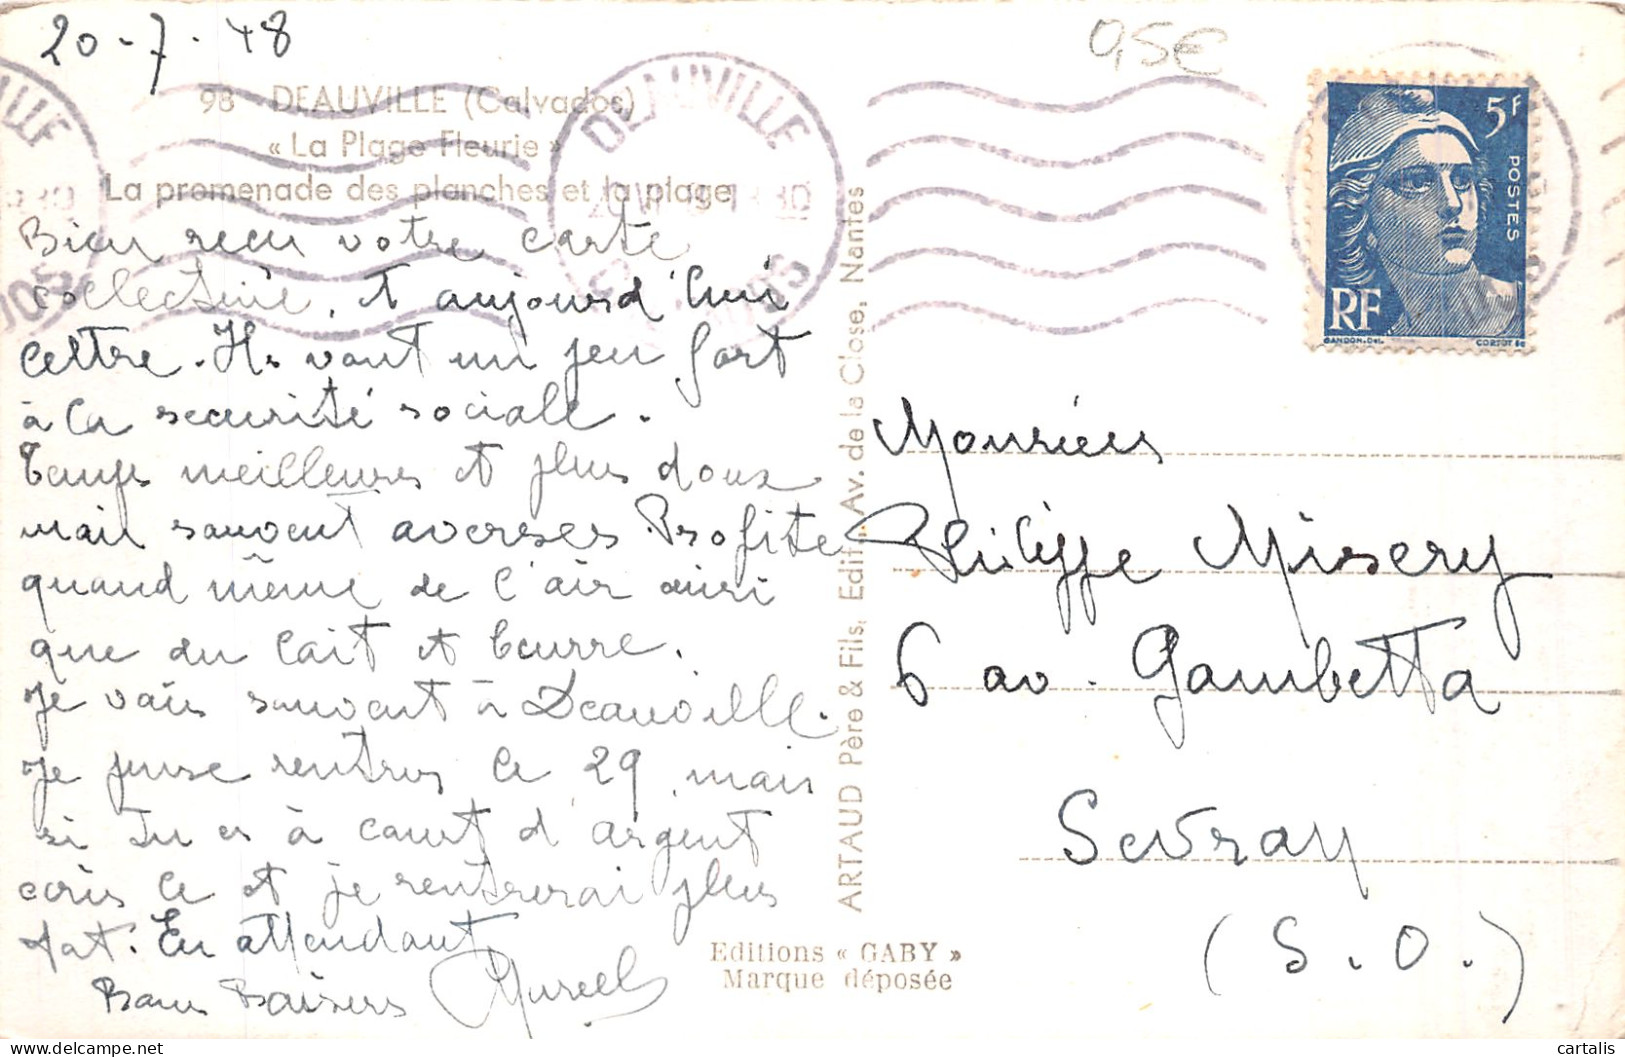 20-7-48
0,5€
98 DEAUVILLE (Calvados)
« La Plage Fleurie »
La promenade des planches et la plage
DEAUVILLE
Bien reçu votre carte
collective, et aujourd'hui
lettre. Ils vont un peu fort
à la securité sociale.
Temps meilleures et plus doux
mais souvent averses. Profite
quand même de l'air ainsi
que du lait et beurre.
Je vais souvent à Deauville.
Je pense rentrer le 29, mais
si tu es à court d'argent
écris le et je rentrerai plus
tot. En attendant,
Bons Baisers
ARTAUD Père & Fils, Edit. Av. de la Close, Nantes
Editions « GABY »
Marque déposée
5F
POSTES
RF
GANDON. Del.
CORTOT Sc
Monsieur
Philippe Misery
6 av. Gambetta
Sevran
(S. O.)
cartalis